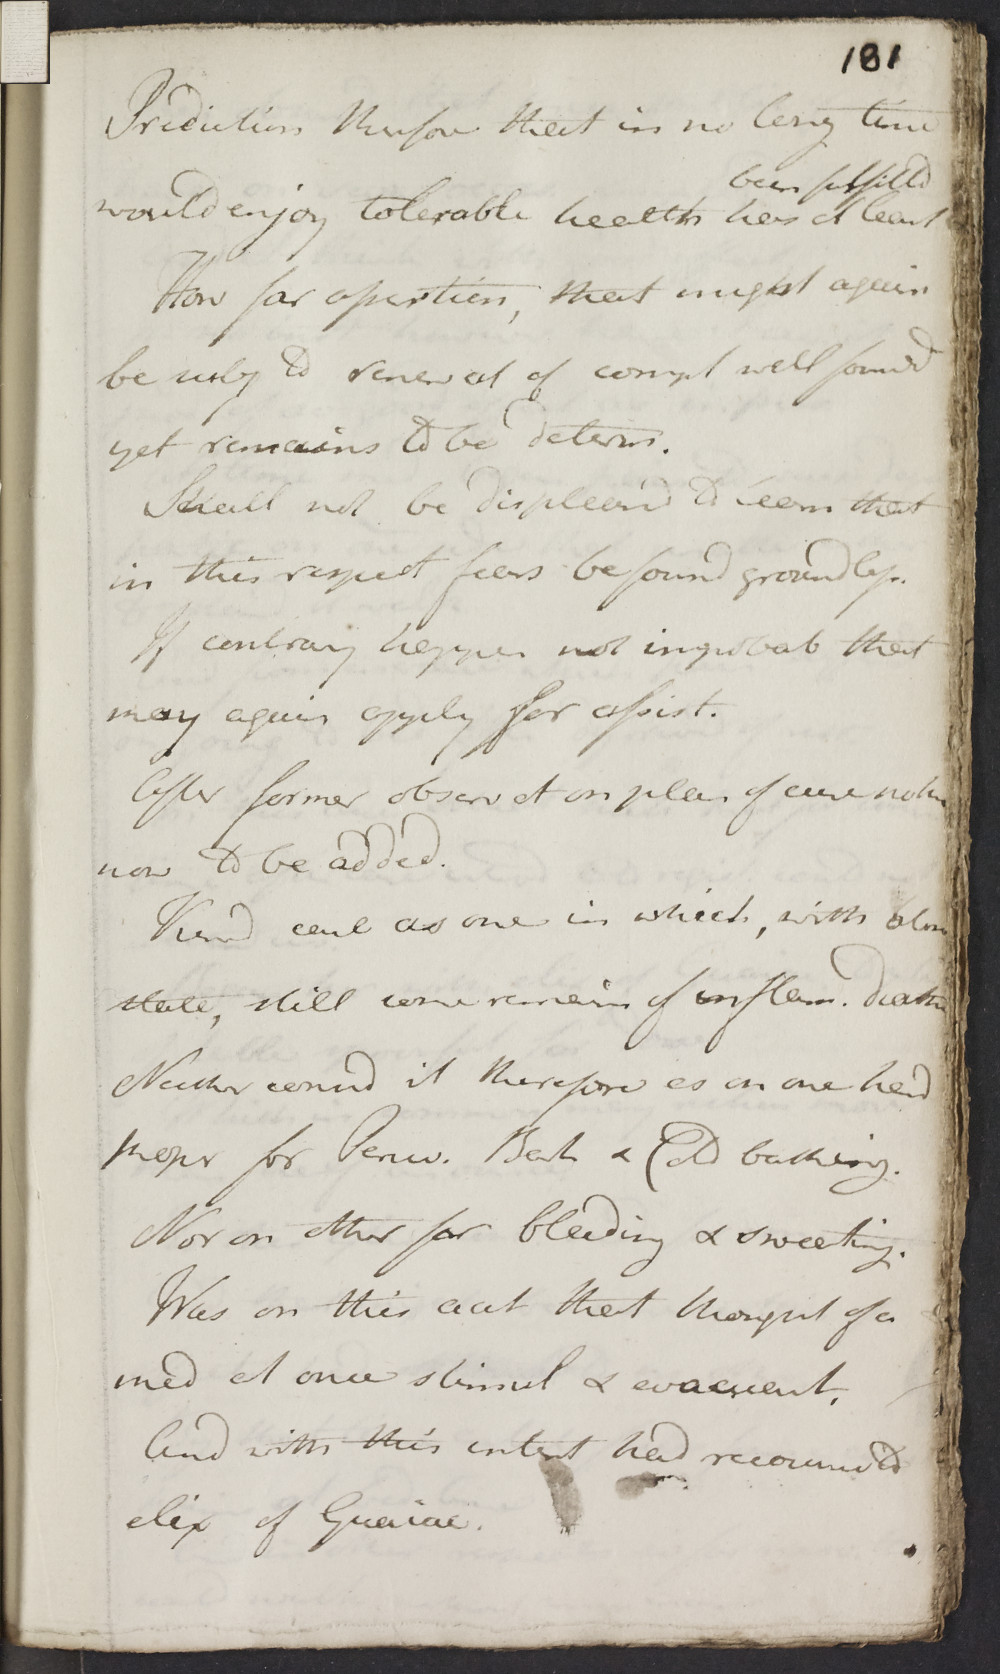 181
Prediction therefore that in no long time
been fulfilld
would enjoy tolerable health has at least
How far assertion, that might again
be subj to renewal of compl well found
yet remains to be determ.
Shall not be displeas'd to learn that
in this respect fears be found groundless.
If contrary happen not improbab that
may again apply for assist.
After former observat on plan of cure noth
now to be added.
View'd case as one in which, with
state, still some remains of inflam. diath
Neither consid it therefore as on one hand
proper for Peruv. Bark & Cold bathing.
Nor on other for bleeding & sweating.
Was on this acct that thought of a
med at once stimul & evacuant.
And with this intent had recourse to
elix of Guaiac.